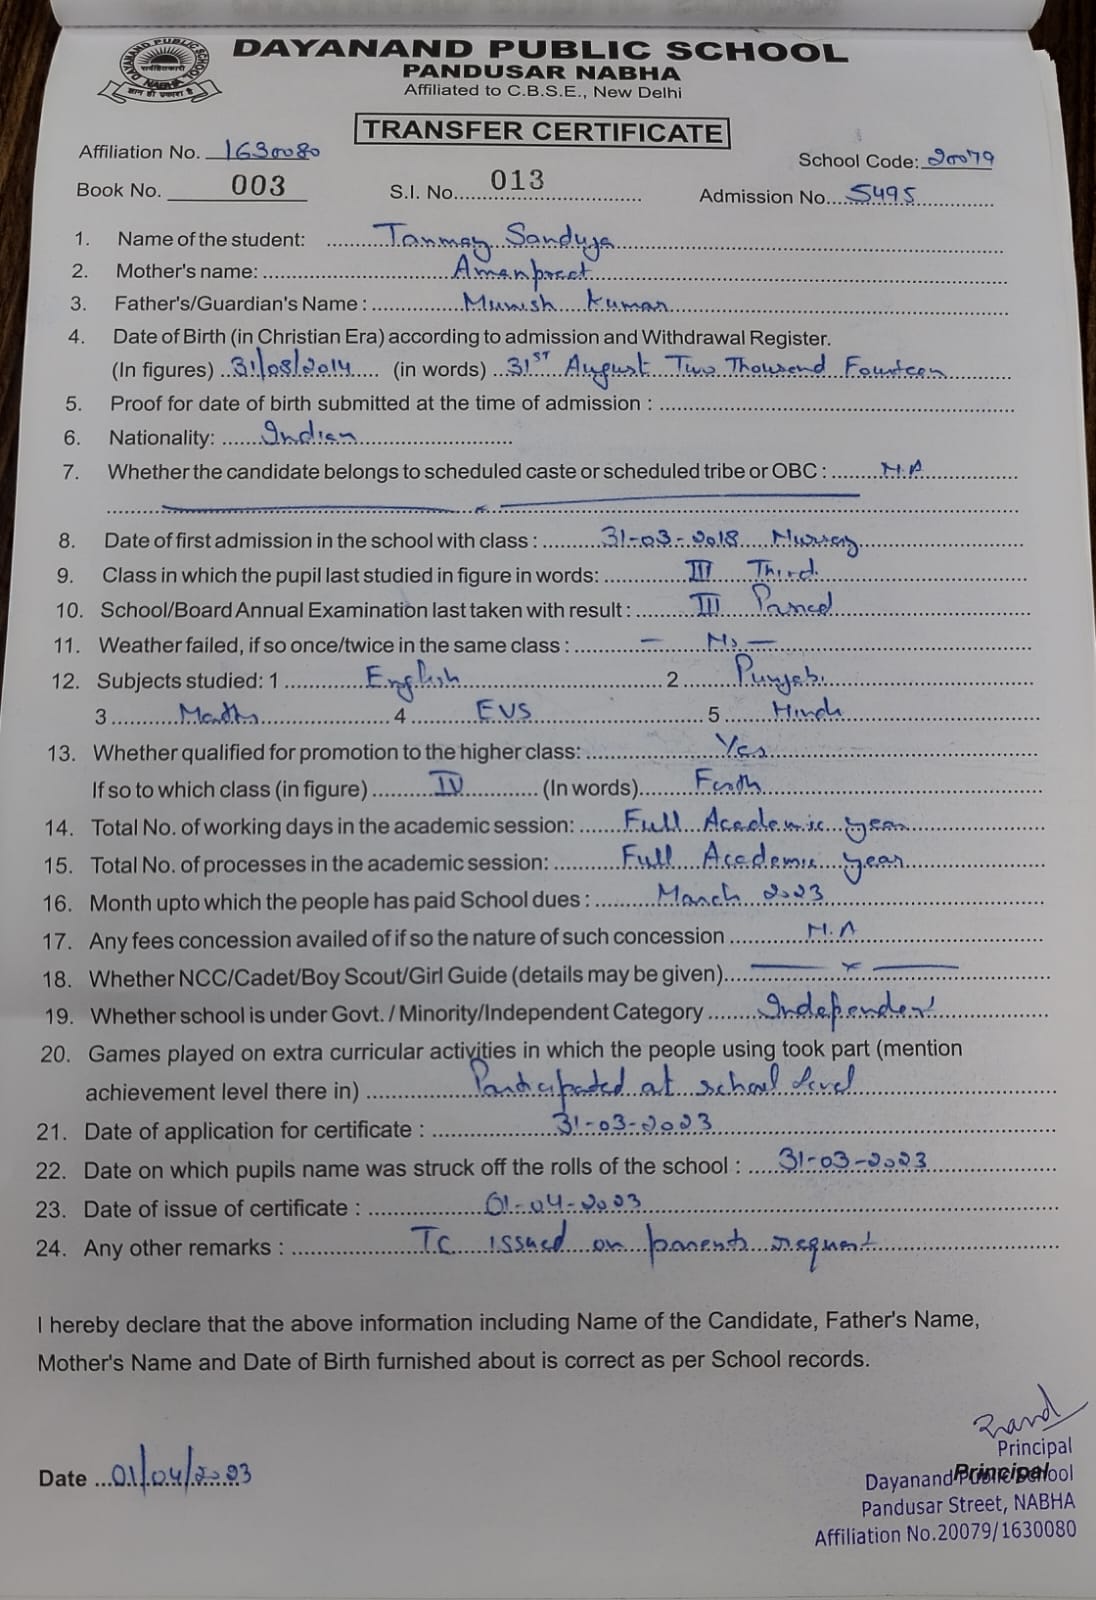 DAYANAND PUBLIC SCHOOL
PANDUSAR NABHA
Affiliated to C.B.S.E., New Delhi
DAYANAND PUBLIC SCHOOL
NABHA
TRANSFER CERTIFICATE
Affiliation No. 1630080
School Code: 20079
Book No. 003
S.I. No. 013
Admission No. 5495
1. Name of the student: Tanmay Sanduja
2. Mother's name: Amanpreet
3. Father's/Guardian's Name : Munish Kumar
4. Date of Birth (in Christian Era) according to admission and Withdrawal Register.
(In figures) 31/08/2014 (in words) 31ST August Two Thousand Fourteen
5. Proof for date of birth submitted at the time of admission :
6. Nationality: Indian
7. Whether the candidate belongs to scheduled caste or scheduled tribe or OBC : N.A
8. Date of first admission in the school with class : 31-03-2018 Nursery
9. Class in which the pupil last studied in figure in words: III Third
10. School/Board Annual Examination last taken with result : III Passed
11. Weather failed, if so once/twice in the same class : — No —
12. Subjects studied: 1 English 2 Punjabi
3 Maths 4 EVS 5 Hindi
13. Whether qualified for promotion to the higher class: Yes
If so to which class (in figure) IV (In words) Forth
14. Total No. of working days in the academic session: Full Academic year
15. Total No. of processes in the academic session: Full Academic year
16. Month upto which the people has paid School dues : March 2023
17. Any fees concession availed of if so the nature of such concession N.A
18. Whether NCC/Cadet/Boy Scout/Girl Guide (details may be given) — x —
19. Whether school is under Govt. / Minority/Independent Category Independent
20. Games played on extra curricular activities in which the people using took part (mention
achievement level there in) Participated at school level
21. Date of application for certificate : 31-03-2023
22. Date on which pupils name was struck off the rolls of the school : 31-03-2023
23. Date of issue of certificate : 01-04-2023
24. Any other remarks : TC issued on parents request
I hereby declare that the above information including Name of the Candidate, Father's Name,
Mother's Name and Date of Birth furnished about is correct as per School records.
Date 01/04/2023
Principal
Principal
Dayanand Public School
Pandusar Street, NABHA
Affiliation No.20079/1630080